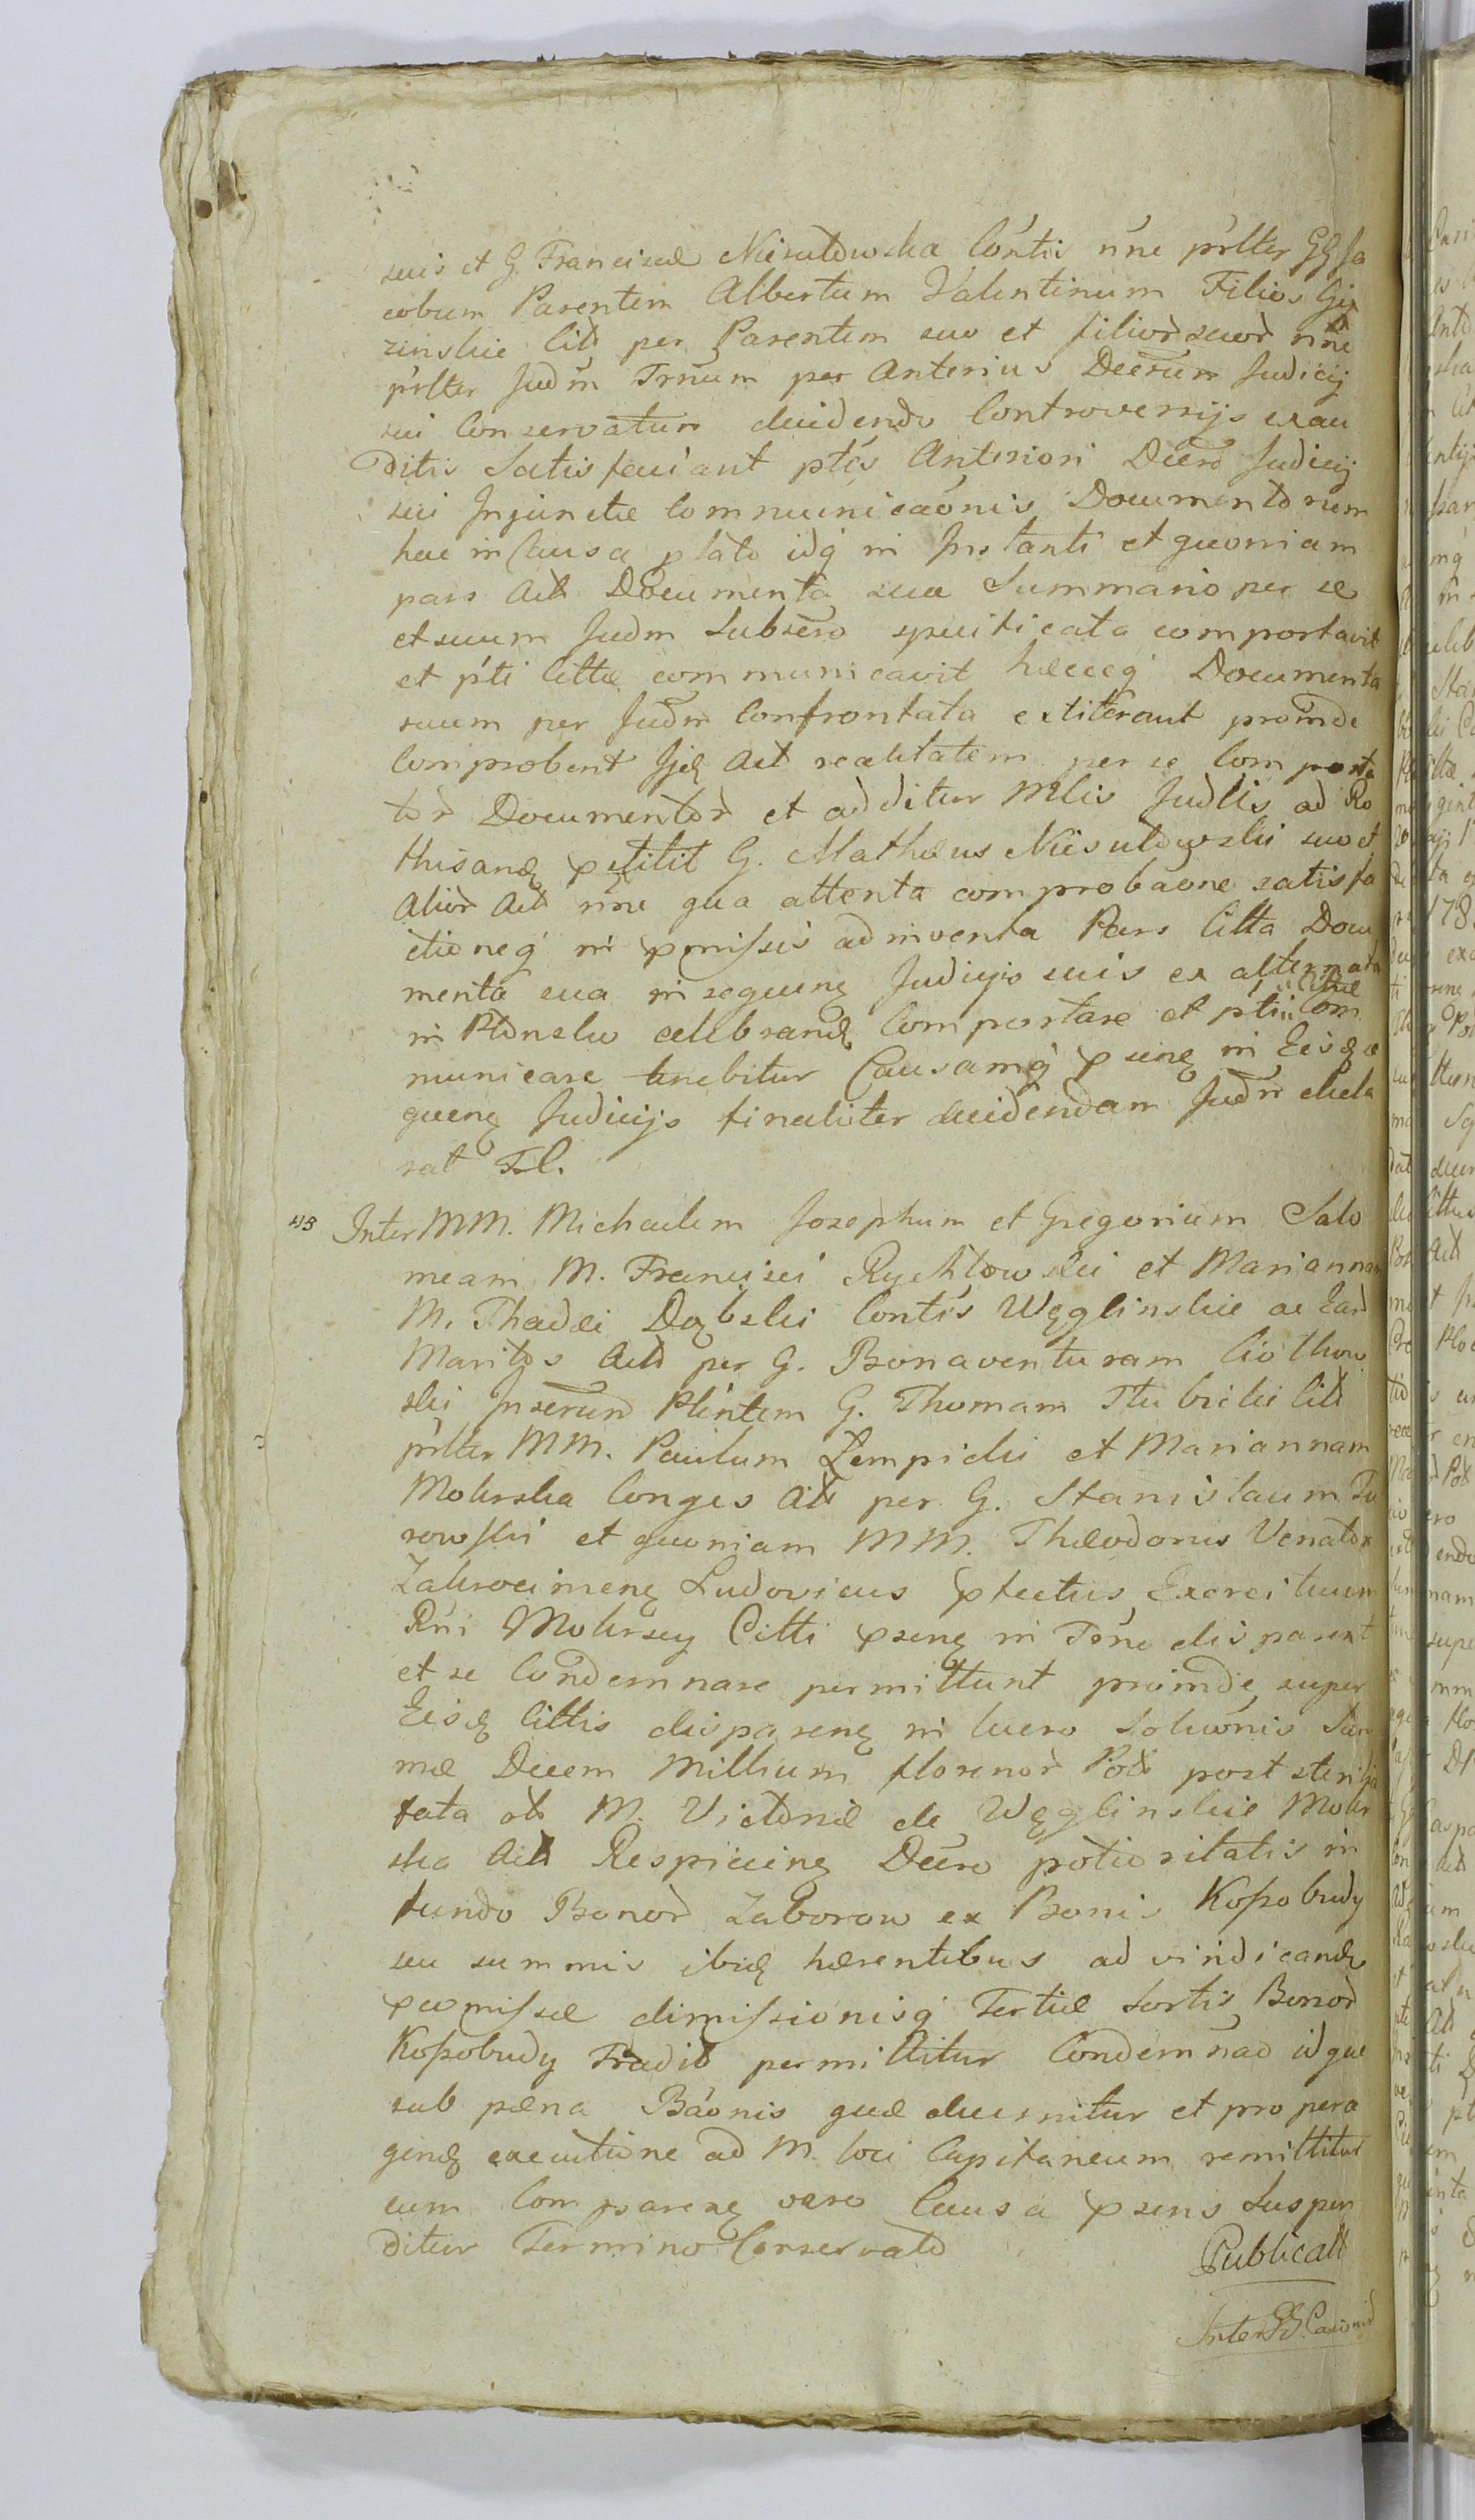 suis et G. Franciscæ Niesułowska Contis nne prlter GG Ja
cobum Parentem Albertum Valentinum Filios Giz
zinskie Citt per Parentem suo et filior suor nne
prlter Judm Trnum per Anterius Decrum Judicij
sui Conservatum decidendo Controversijs exau
ditis Satisfaciant ptes Anteriori Decro Judicij
sui Injunctæ Communicaonis Documentorum
hac in Causa plato idq in Instanti et quoniam
pars Act Documenta sua Summario per se
et suum Judm Subscro specificata comportavit
et pti Cittæ communicavit hæceq Documenta
suum per Judm Confrontata extiterunt proinde
Comprobent Ijd Act realitatem per se Comporta
tor Documentor et additur Mlis Judlis ad Ro
thisand petitit G. Mathæus Niesułowski suo et
Alior Act nne qua attenta comprobaone satisfa
ctioneq in pmissis adinventa Pars Citta Docu
menta sua in sequen Judicijs suis ex alternata
in Płonsko celebrand Comportare et pti Cittæ Com
municare tenebitur Causamq psen in Eisd se
quen Judicijs finaliter decidendam Judm decla
rat Tl.
Inter MM. Michaelem Josephum et Gregorium Salo
meam M. Francisci Rychłowski et Mariannam
M. Thadæi Dąbski Contis Węglinskie ac Ear
Maritos Act per G. Bonaventuram Ciothow
ski Inserum Plintem G. Thomam Tłubicki Citt
prlter MM. Paulum Zempicki et Mariannam
Mokrska Conges Citt per G. Stanislaum Tu
rowski et quoniam MM. Theodorus Venator
Zakrocimen Ludovicus pfectus Exercituum
Rni Mokrscy Citti psen in Tone disparent
et se Condemnare permittunt proinde super
Eisd Cittis disparen in lucro Soluonis Sum
mæ Decem Millium florenor Pol post sterilia
fata ol M. Victoriæ de Węglinskie Mokr
ska Act Respiciend Decro potioritatis in
fundo Bonor Zaborow ex Bonis Kossobudy
seu summis ibid hærentibus ad vindicand
pcomissæ dimissionisq Tertiæ Sortis Bonor
Kossobudy Tradit permittitur Condemnad idque
sub pæna Baonis quæ decernitur et pro pera
gend executione ad M. loci Capitaneum remittitur
cum Comparen vero Causa psens Suspen
ditur Termino Conservato
Publicatt
Inter GG. Casimir